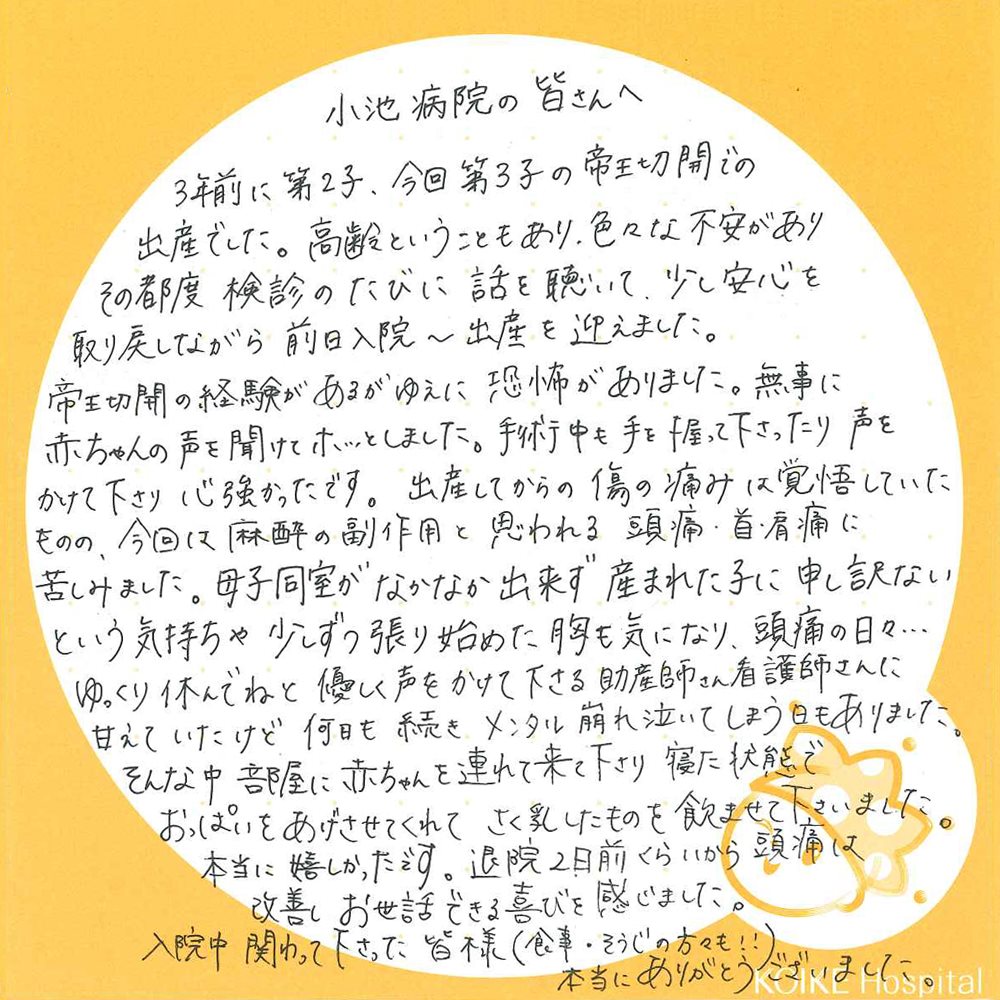 小池病院の皆さんへ
3年前に第2子、今回第3子の帝王切開での
出産でした。高齢ということもあり、色々な不安があり
その都度検診のたびに話を聴いて、少し安心を
取り戻しながら前日入院〜出産を迎えました。
帝王切開の経験があるがゆえに恐怖がありました。無事に
赤ちゃんの声を聞けてホッとしました。手術中も手を握って下さったり声を
かけて下さり心強かったです。出産してからの傷の痛みは覚悟していた
ものの、今回は麻酔の副作用と思われる頭痛・首・肩痛に
苦しみました。母子同室がなかなか出来ず産まれた子に申し訳ない
という気持ちや少しずつ張り始めた胸も気になり、頭痛の日々…
ゆっくり休んでねと優しく声をかけて下さる助産師さん看護師さんに
甘えていたけど何日も続きメンタル崩れ泣いてしまう日もありました。
そんな中部屋に赤ちゃんを連れて来て下さり寝た状態で
おっぱいをあげさせてくれてさく乳したものを飲ませて下さいました。
本当に嬉しかったです。退院2日前くらいから頭痛は
改善しお世話できる喜びを感じました。
入院中関わって下さった皆様(食事・そうじの方々も!!)
本当にありがとうございました。
KOIKE Hospital